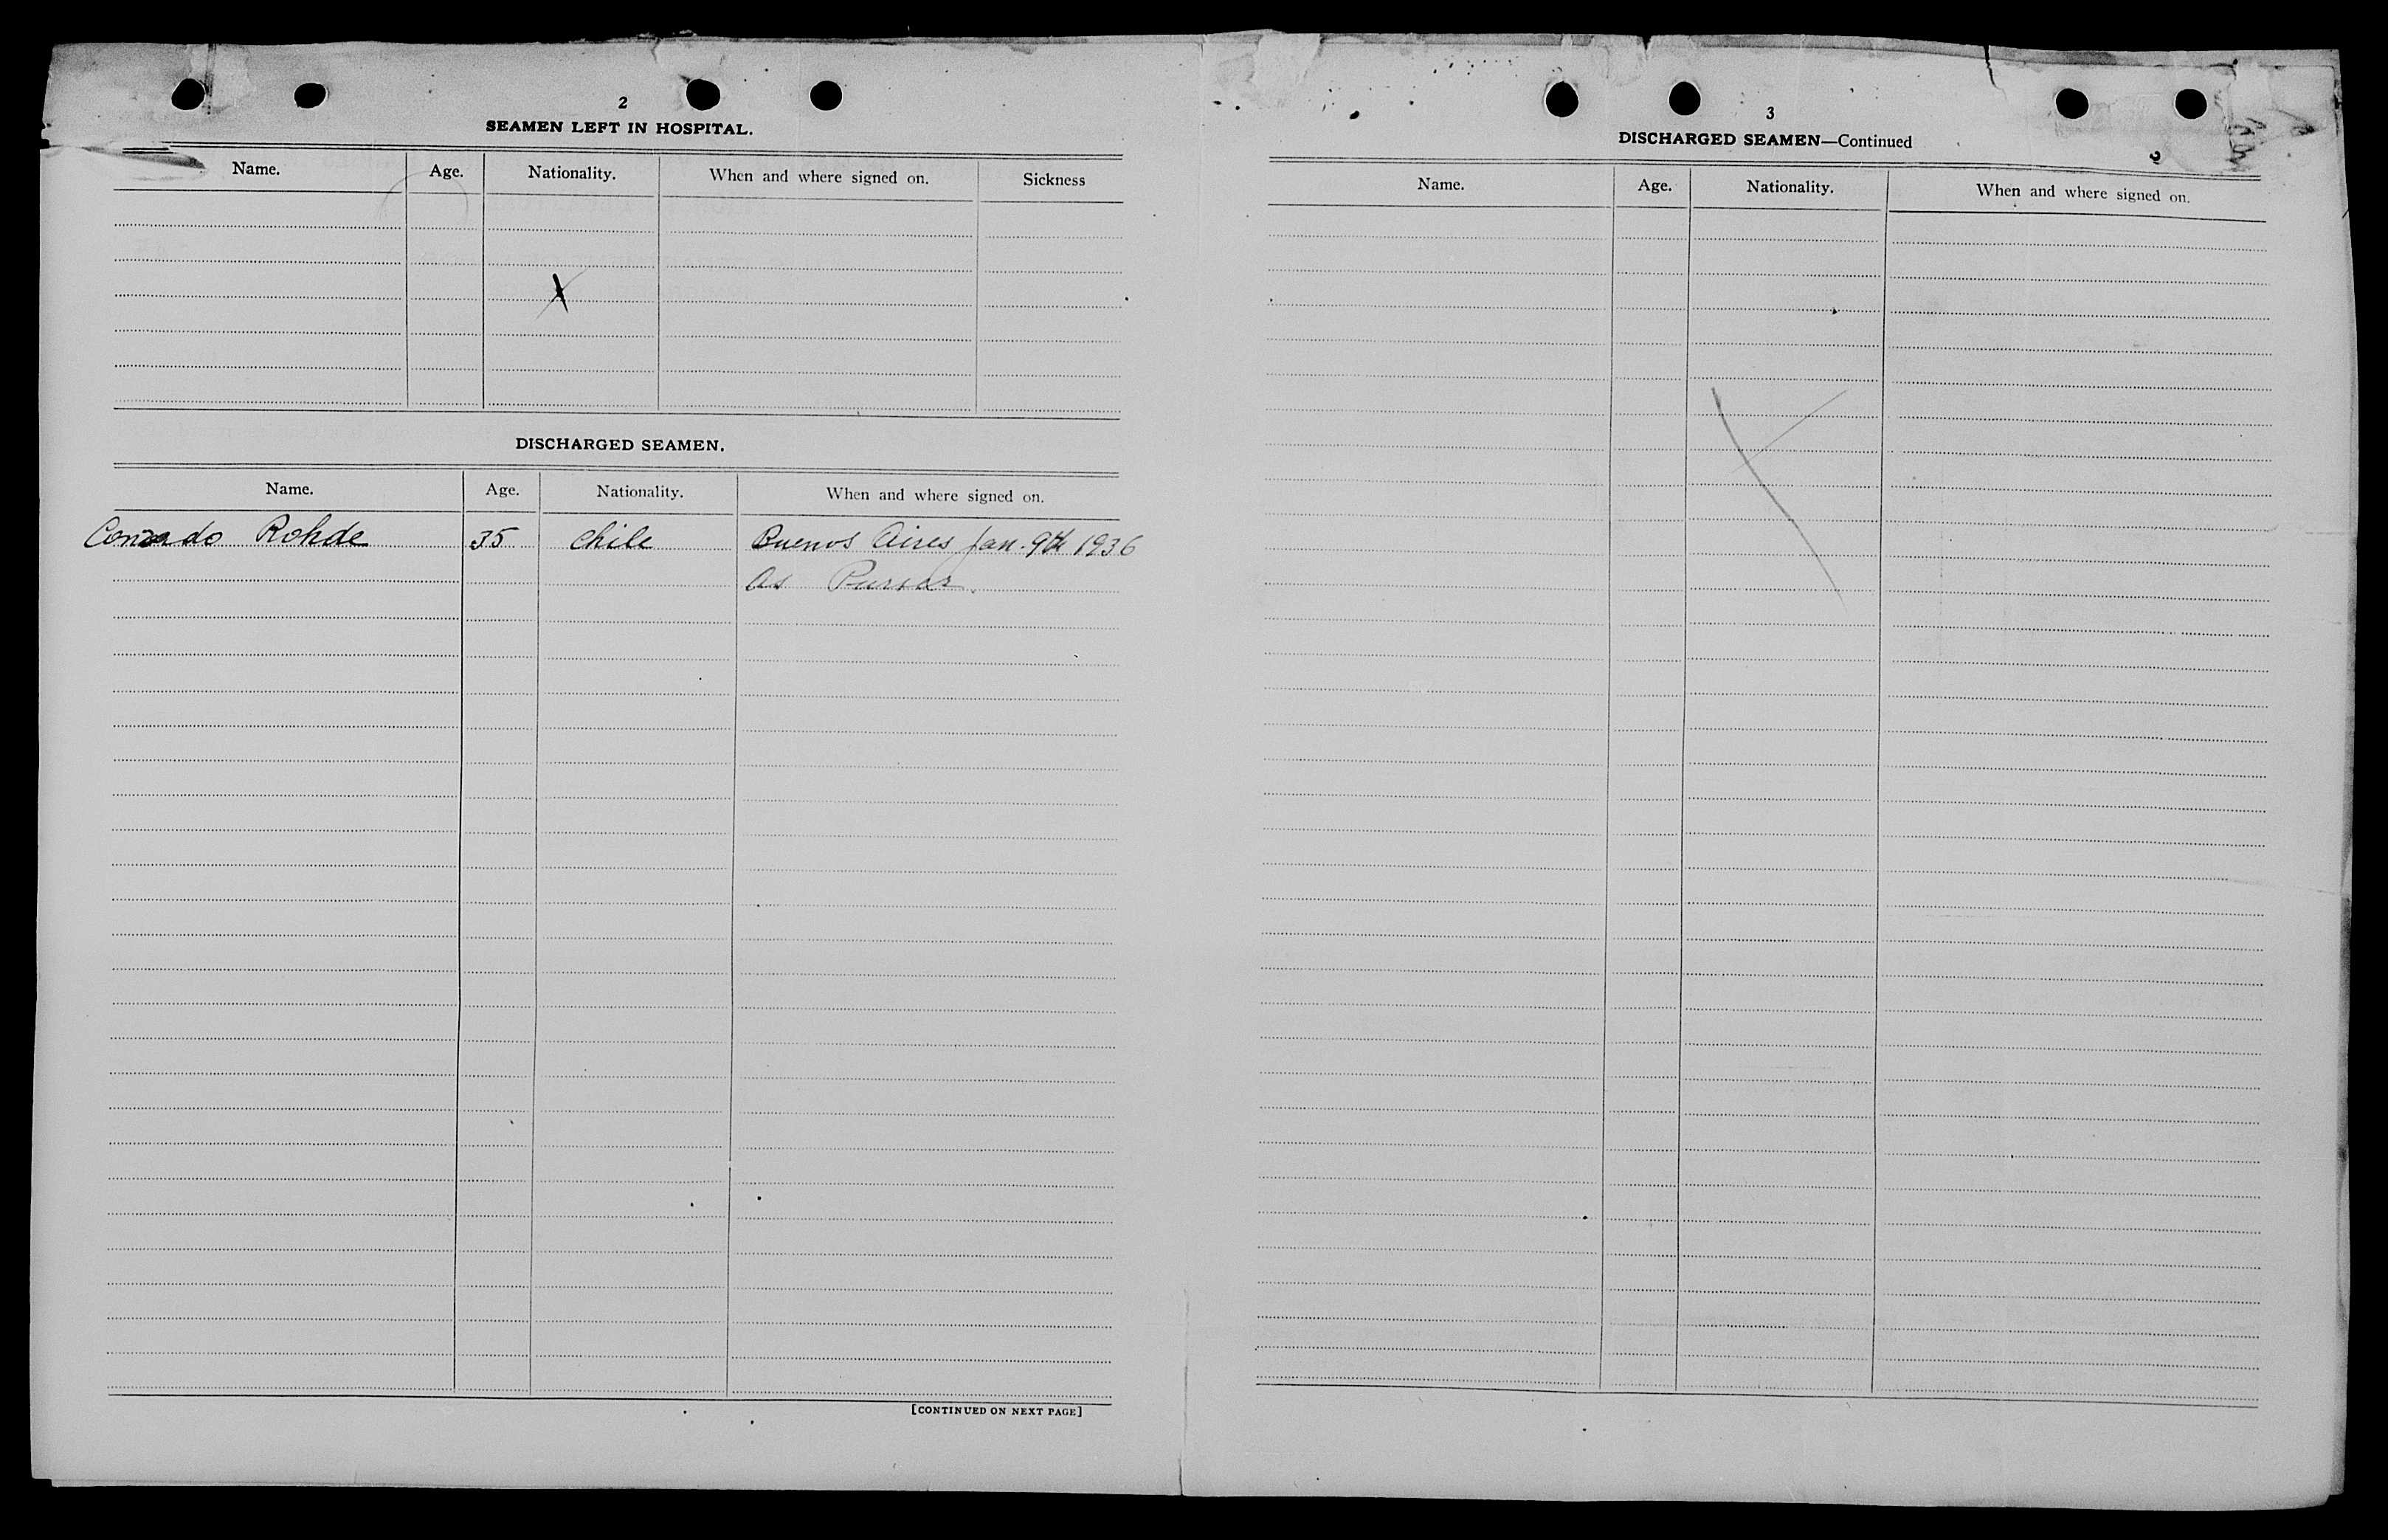 2
SEAMEN LEFT IN HOSPITAL.
Name. Age. Nationality. When and where signed on. Sickness
X
DISCHARGED SEAMEN.
Name. Age. Nationality. When and where signed on.
Conrado Rohde 35 Chile Buenos Aires Jan. 9th 1936
As Purser.
[CONTINUED ON NEXT PAGE]
3
DISCHARGED SEAMEN—Continued
Name. Age. Nationality. When and where signed on.
X